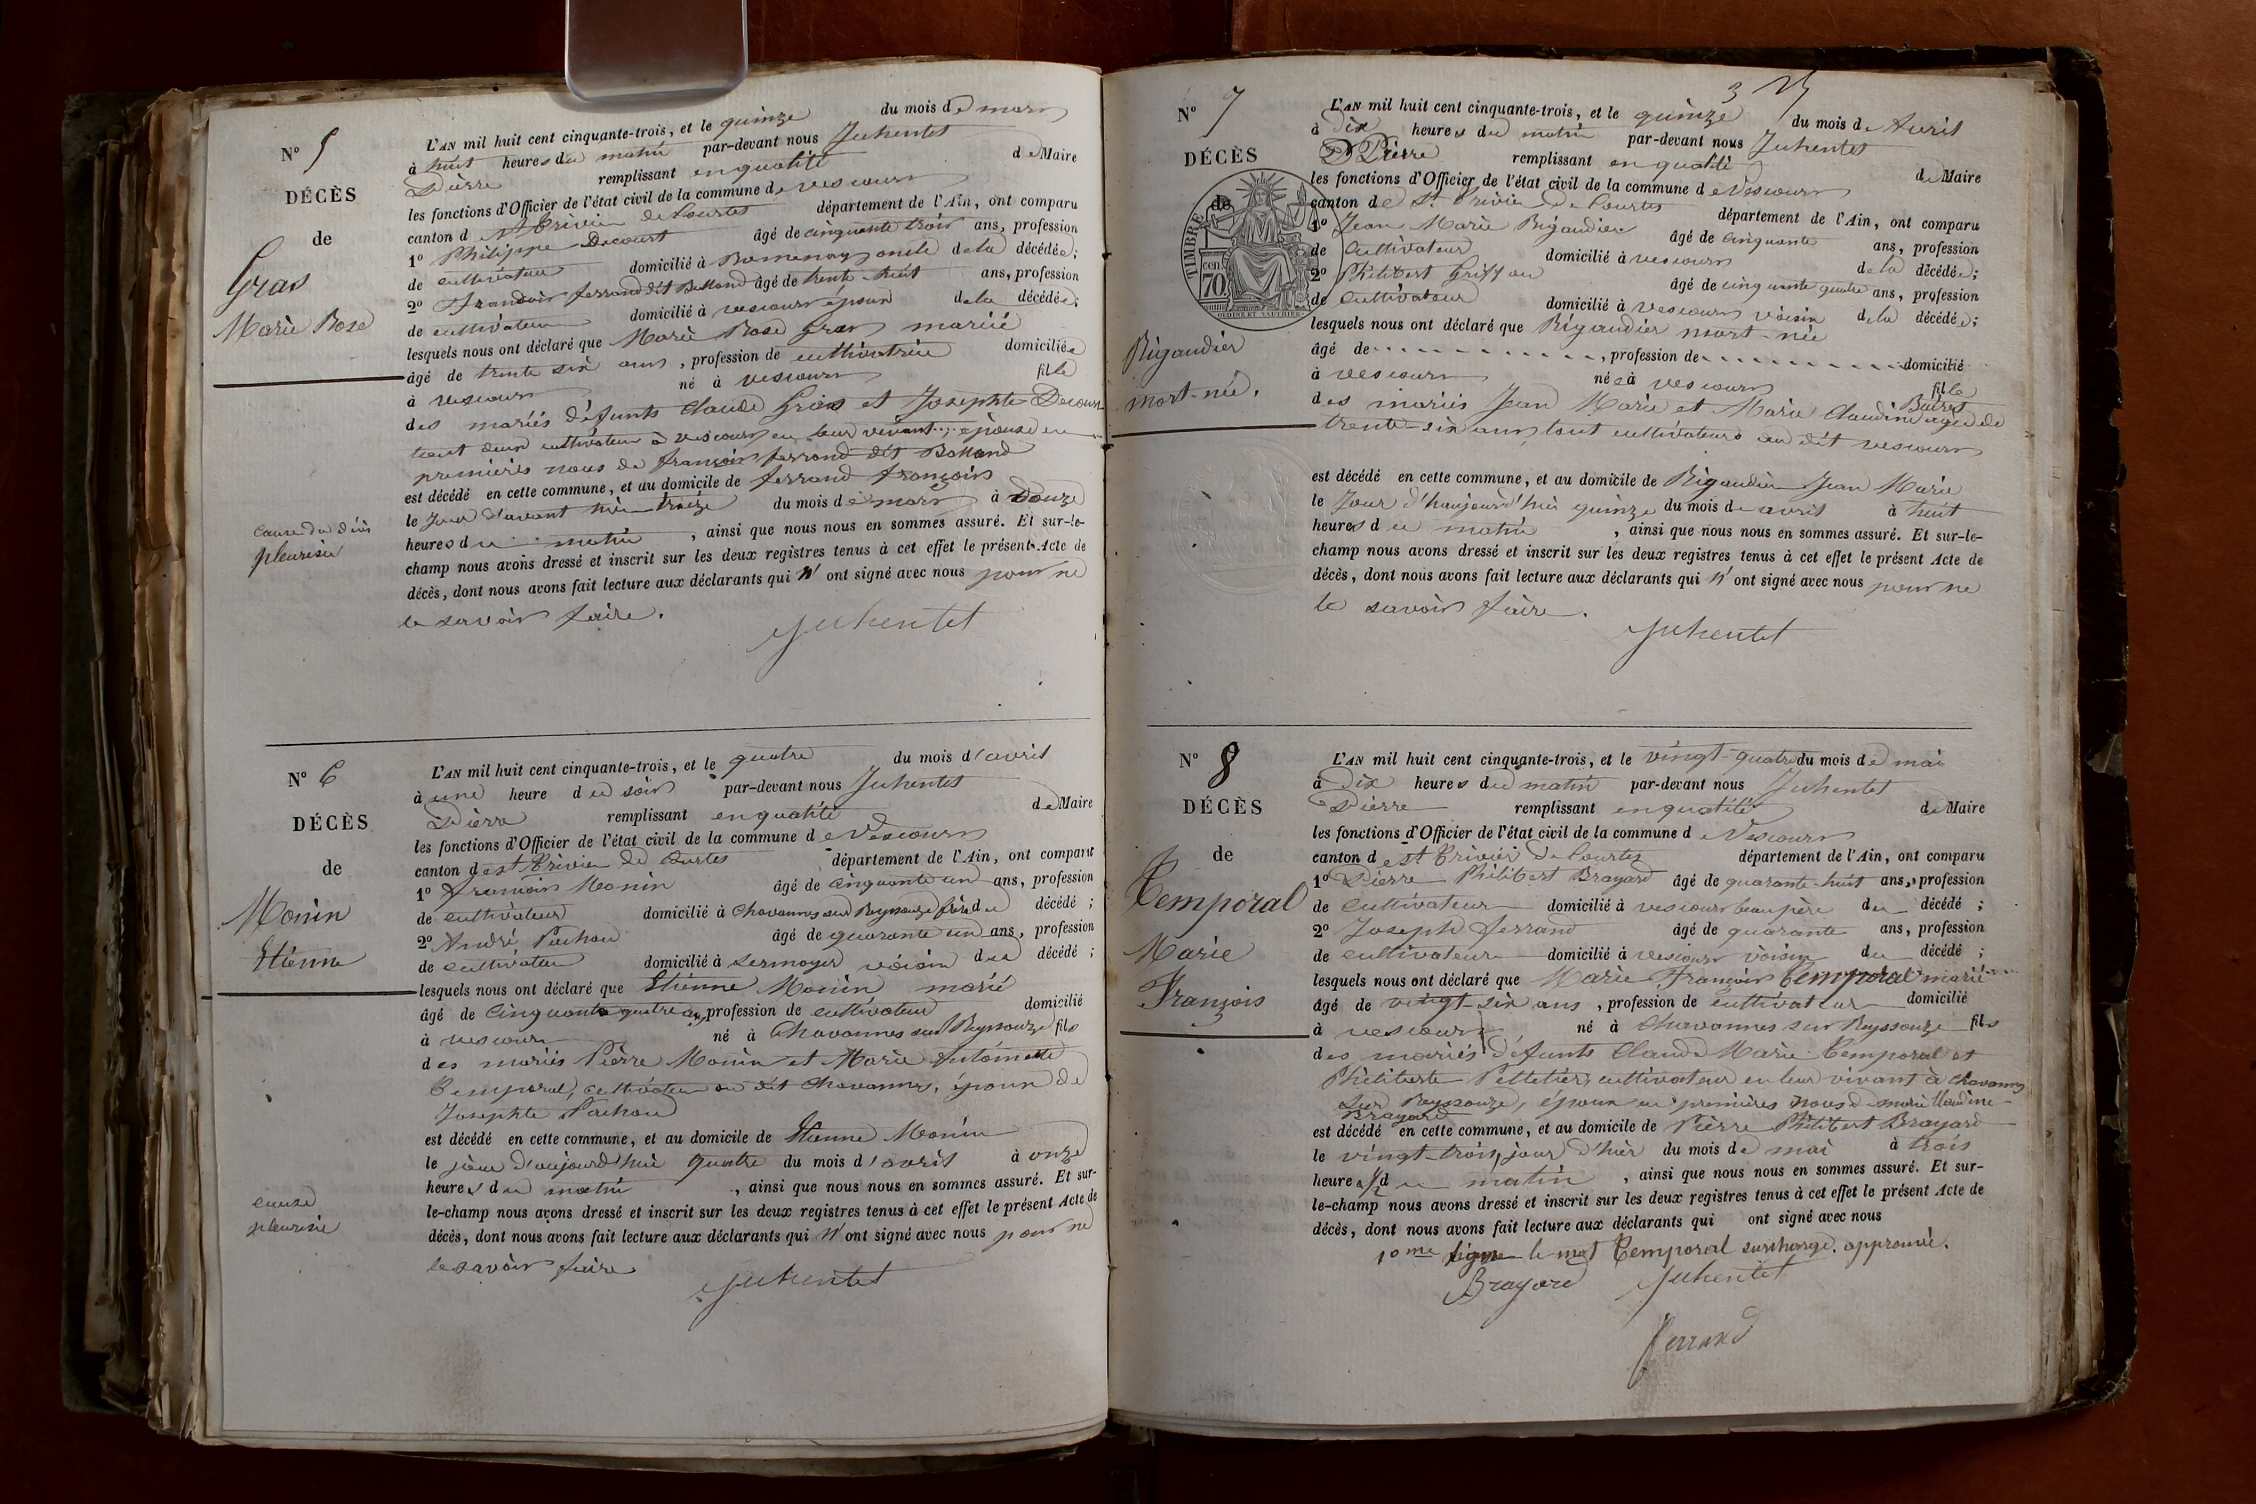 N° 5
DÉCÈS
de
Gras
Marie Rose
cause du décès
pleurésie
L'AN mil huit cent cinquante-trois, et le quinze du mois de mars
à huit heures du matin par-devant nous Juhentet
Pierre remplissant en qualité de Maire
les fonctions d'Officier de l'état civil de la commune de vescours
canton d St Trivier de Courtes département de l'Ain, ont comparu
1° Philippe Decourt âgé de cinquante trois ans, profession
de cultivateur domicilié à Romenay oncle de la décédée;
2° françois ferrand dit Bolland âgé de trente-huit ans, profession
de cultivateur domicilié à vescours époux de la décédée;
lesquels nous ont déclaré que Marie Rose Gras mariée
âgé de trente six ans, profession de cultivatrice domiciliée
à vescours né à vescours fille
des mariés défunts Claude Gras et Josephte Decourt
tout deux cultivateur à vescours en leur vivant, épouse en
premières nous de françois ferrand dit Bolland
est décédé en cette commune, et au domicile de ferrand françois
le jour d'avant hier treize du mois de mars à Douze
heures du matin, ainsi que nous nous en sommes assuré. Et sur-le-
champ nous avons dressé et inscrit sur les deux registres tenus à cet effet le présent Acte de
décès, dont nous avons fait lecture aux déclarants qui n' ont signé avec nous pour ne
le savoir faire.
Juhentet
N° 6
DÉCÈS
de
Monin
Etienne
cause
pleurésie
L'AN mil huit cent cinquante-trois, et le quatre du mois d'avril
à une heure du soir par-devant nous Juhentet
Pierre remplissant en qualité de Maire
les fonctions d'Officier de l'état civil de la commune de Vescours
canton de St Trivier de Courtes département de l'Ain, ont comparu
1° françois Monin âgé de cinquante un ans, profession
de cultivateur domicilié à Chavannes sur Reyssouze frère du décédé;
2° André Pachou âgé de quarante un ans, profession
de cultivateur domicilié à sermoyer voisin du décédé;
lesquels nous ont déclaré que Etienne Monin marié
âgé de cinquante quatre ans, profession de cultivateur domicilié
à vescours né à Chavannes sur Reyssouze fils
des mariés Pierre Monin et Marie Antoinette
Temporal, cultivateur au dit Chavannes, époux de
Josephte Pachou
est décédé en cette commune, et au domicile de Etienne Monin
le jour d'aujourd'hui quatre du mois d'avril à onze
heures du matin, ainsi que nous nous en sommes assuré. Et sur-
le-champ nous avons dressé et inscrit sur les deux registres tenus à cet effet le présent Acte de
décès, dont nous avons fait lecture aux déclarants qui n' ont signé avec nous pour ne
le savoir faire
Juhentet
3
N° 7
DÉCÈS
de
TIMBRE
cen.
70
Rigaudier
mort-née.
L'AN mil huit cent cinquante-trois, et le quinze du mois de Avril
à Dix heures du matin par-devant nous Juhentet
Pierre remplissant en qualité de Maire
les fonctions d'Officier de l'état civil de la commune de Vescours
canton de St Trivier de Courtes département de l'Ain, ont comparu
1° Jean Marie Rigaudier âgé de cinquante ans, profession
de cultivateur domicilié à vescours de la décédée;
2° Philibert Griffon âgé de cinquante quatre ans, profession
de cultivateur domicilié à vescours voisin de la décédée;
lesquels nous ont déclaré que Rigaudier mort-née
âgé de, profession de domicilié
à vescours née à vescours fille
des mariés Jean Marie et Marie Claudine âgée de
trente-six ans, tout cultivateurs au dit vescours
est décédé en cette commune, et au domicile de Rigaudier Jean Marie
le Jour d'haujourd'hui quinze du mois de avril à huit
heures du matin, ainsi que nous nous en sommes assuré. Et sur-le-
champ nous avons dressé et inscrit sur les deux registres tenus à cet effet le présent Acte de
décès, dont nous avons fait lecture aux déclarants qui n' ont signé avec nous pour ne
le savoir faire.
Juhentet
N° 8
DÉCÈS
de
Temporal
Marie
François
L'AN mil huit cent cinquante-trois, et le vingt-quatre du mois de mai
à Dix heures du matin par-devant nous Juhentet
Pierre remplissant en qualité de Maire
les fonctions d'Officier de l'état civil de la commune de Vescours
canton de St Trivier de Courtes département de l'Ain, ont comparu
1° Pierre Philibert Brayard âgé de quarante-huit ans, profession
de cultivateur domicilié à vescours beau père du décédé;
2° Joseph ferrand âgé de quarante ans, profession
de cultivateur domicilié à vescours voisin du décédé;
lesquels nous ont déclaré que Marie François Temporal marié
âgé de vingt-six ans, profession de cultivateur domicilié
à vescours né à Chavannes sur Reyssouze fils
des mariés défunts Claude Marie Temporal et
Philiberte Pelletier, cultivateur en leur vivant à chavannes
sur Reyssouze, époux en premières nous de marie Claudine
Brayard
est décédé en cette commune, et au domicile de Pierre Philibert Brayard
le vingt-trois, jour d'hier du mois de mai à trois
heures 1/2 du matin, ainsi que nous nous en sommes assuré. Et sur-
le-champ nous avons dressé et inscrit sur les deux registres tenus à cet effet le présent Acte de
décès, dont nous avons fait lecture aux déclarants qui ont signé avec nous
10me ligne le mot Temporal surchargé approuvé.
Brayard Juhentet
Ferrand